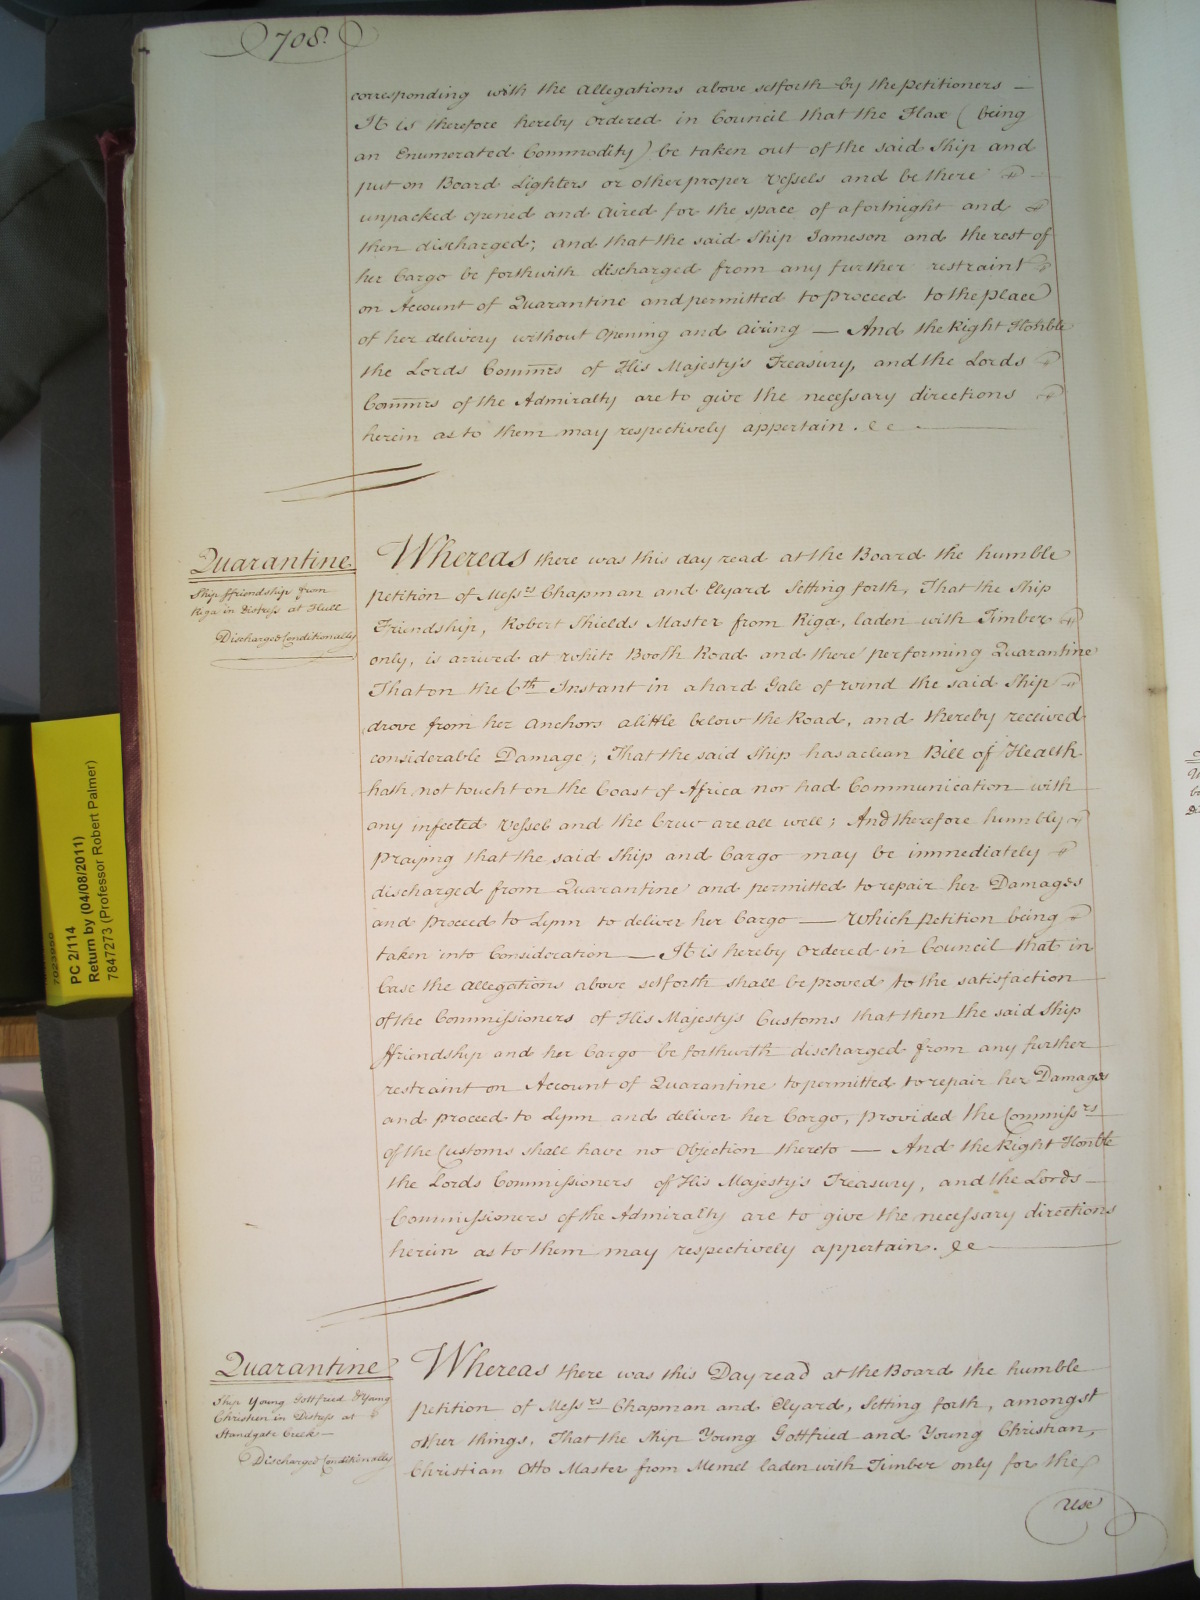 708.
corresponding with the Allegations above setforth by the Petitioners —
It is therefore hereby Ordered in Council that the Flax (being
an Enumerated Commodity) be taken out of the said Ship and
put on Board Lighters or other proper Vessels and be there
unpacked opened and Aired for the space of a fortnight and
then discharged; and that the said Ship Jameson and the rest of
her Cargo be forthwith discharged from any further restraint
on Account of Quarantine and permitted to proceed to the place
of her delivery without Opening and Airing — And the Right Honble
the Lords Commrs of His Majesty's Treasury, and the Lords
Commrs of the Admiralty are to give the necessary directions
herein as to them may respectively appertain. &c
Quarantine
Ship ffriendship from
Riga in Distress at Hull
Discharged Conditionally
Whereas there was this day read at the Board the humble
petition of Messrs Chapman and Elyard Setting forth, That the Ship
Friendship, Robert Shields Master from Riga, laden with Timber
only, is arrived at White Booth Road and there performing Quarantine
That on the 6th Instant in a hard Gale of Wind the said Ship
drove from her Anchors a little below the Road, and thereby received
considerable Damage; That the said Ship has a clean Bill of Health
hath not toucht on the Coast of Africa nor had Communication with
any infected Vessel and the Crew are all well; And therefore humbly
praying that the said Ship and Cargo may be immediately
discharged from Quarantine and permitted to repair her Damages
and proceed to Lynn to deliver her Cargo — Which petition being
taken into Consideration — It is hereby Ordered in Council that in
Case the Allegations above setforth shall be proved to the satisfaction
of the Commissioners of His Majesty's Customs that then the said Ship
ffriendship and her Cargo be forthwith discharged from any further
restraint on Account of Quarantine to permitted to repair her Damages
and proceed to Lynn and deliver her Cargo, provided the Commissrs
of the Customs shall have no Objection thereto — And the Right Honble
the Lords Commissioners of His Majesty's Treasury, and the Lords
Commissioners of the Admiralty are to give the necessary directions
herein as to them may respectively appertain. &c
Quarantine
Ship Young Gottfried & Young
Christien in Distress at
Standgate Creek —
Discharged Conditionally
Whereas there was this Day read at the Board the humble
petition of Messrs Chapman and Elyard, Setting forth, amongst
other things, That the Ship Young Gottfried and Young Christian,
Christian Otto Master from Memel laden with Timber only for the
Use
PC 2/114
Return by (04/08/2011)
7847273 (Professor Robert Palmer)